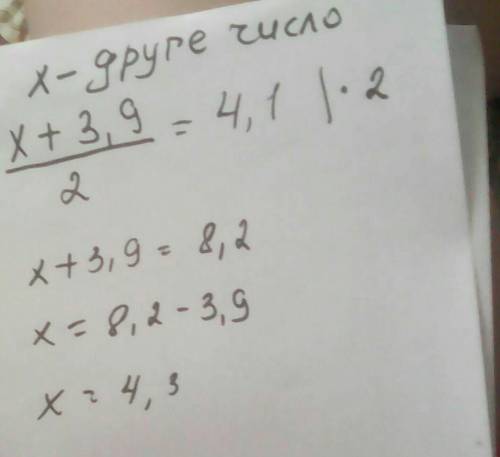 x - друге число
x + 3,9 / 2 = 4,1 | · 2
x + 3,9 = 8,2
x = 8,2 - 3,9
x = 4,3